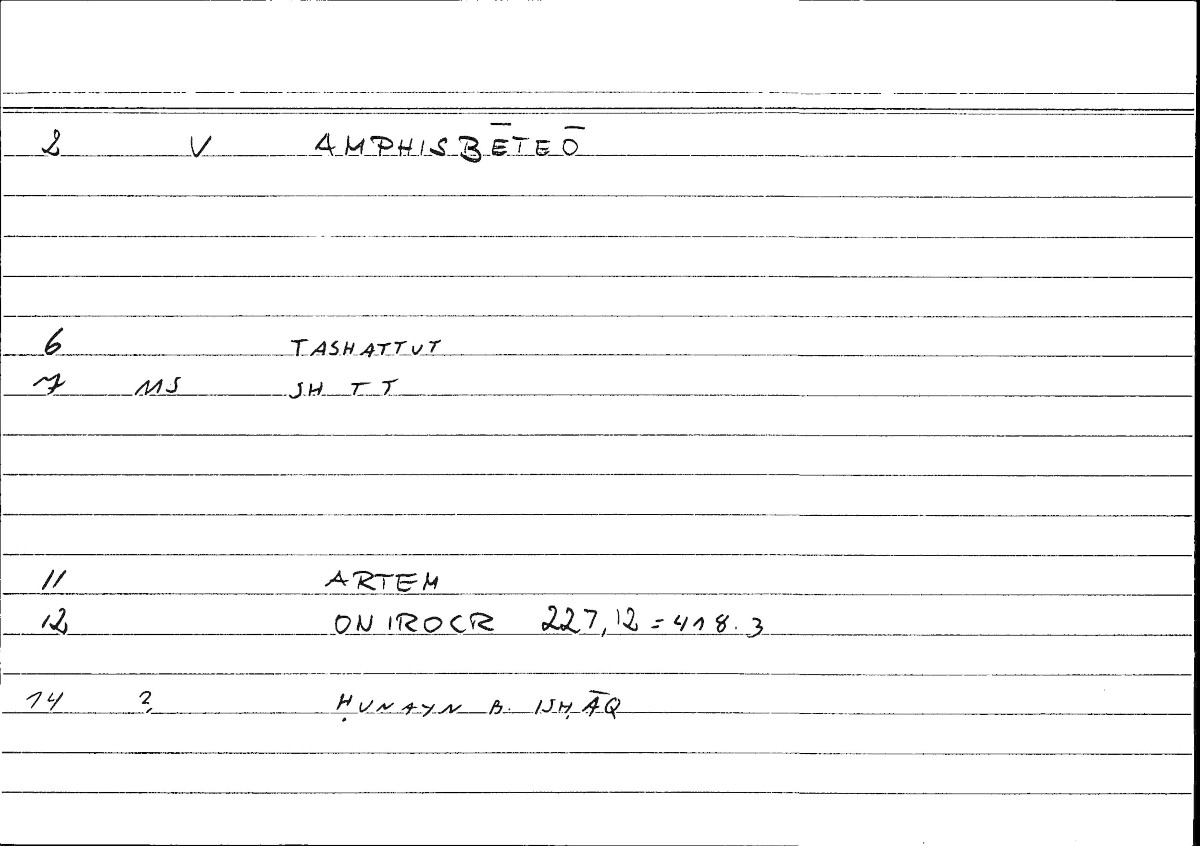 2 V AMPHISBĒTEŌ
6 TASHATTUT
7 MS SH T T
11 ARTEM
12 ONIROCR 227,12=418.3
14 ? ḤUNAYN B. ISḤĀQ